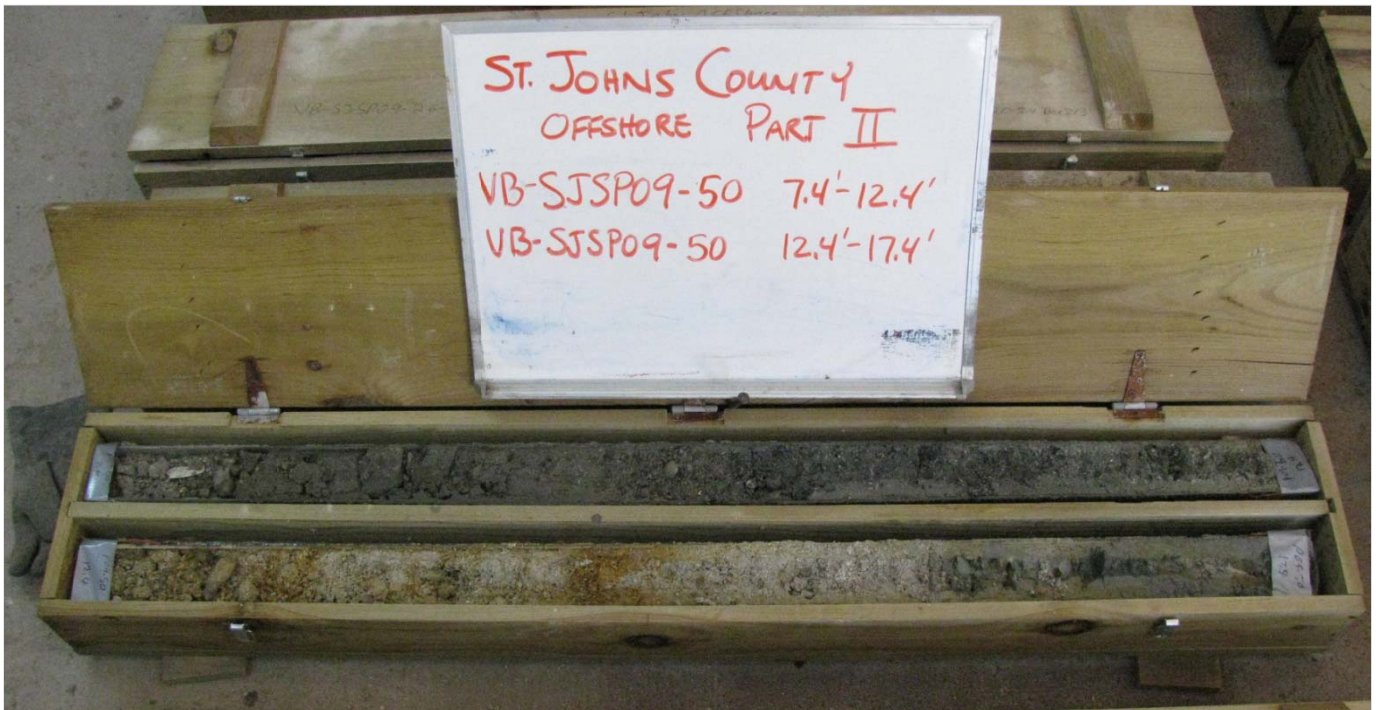 ST. JOHNS COUNTY
OFFSHORE PART II
VB-SJSP09-50 7.4'-12.4'
VB-SJSP09-50 12.4'-17.4'